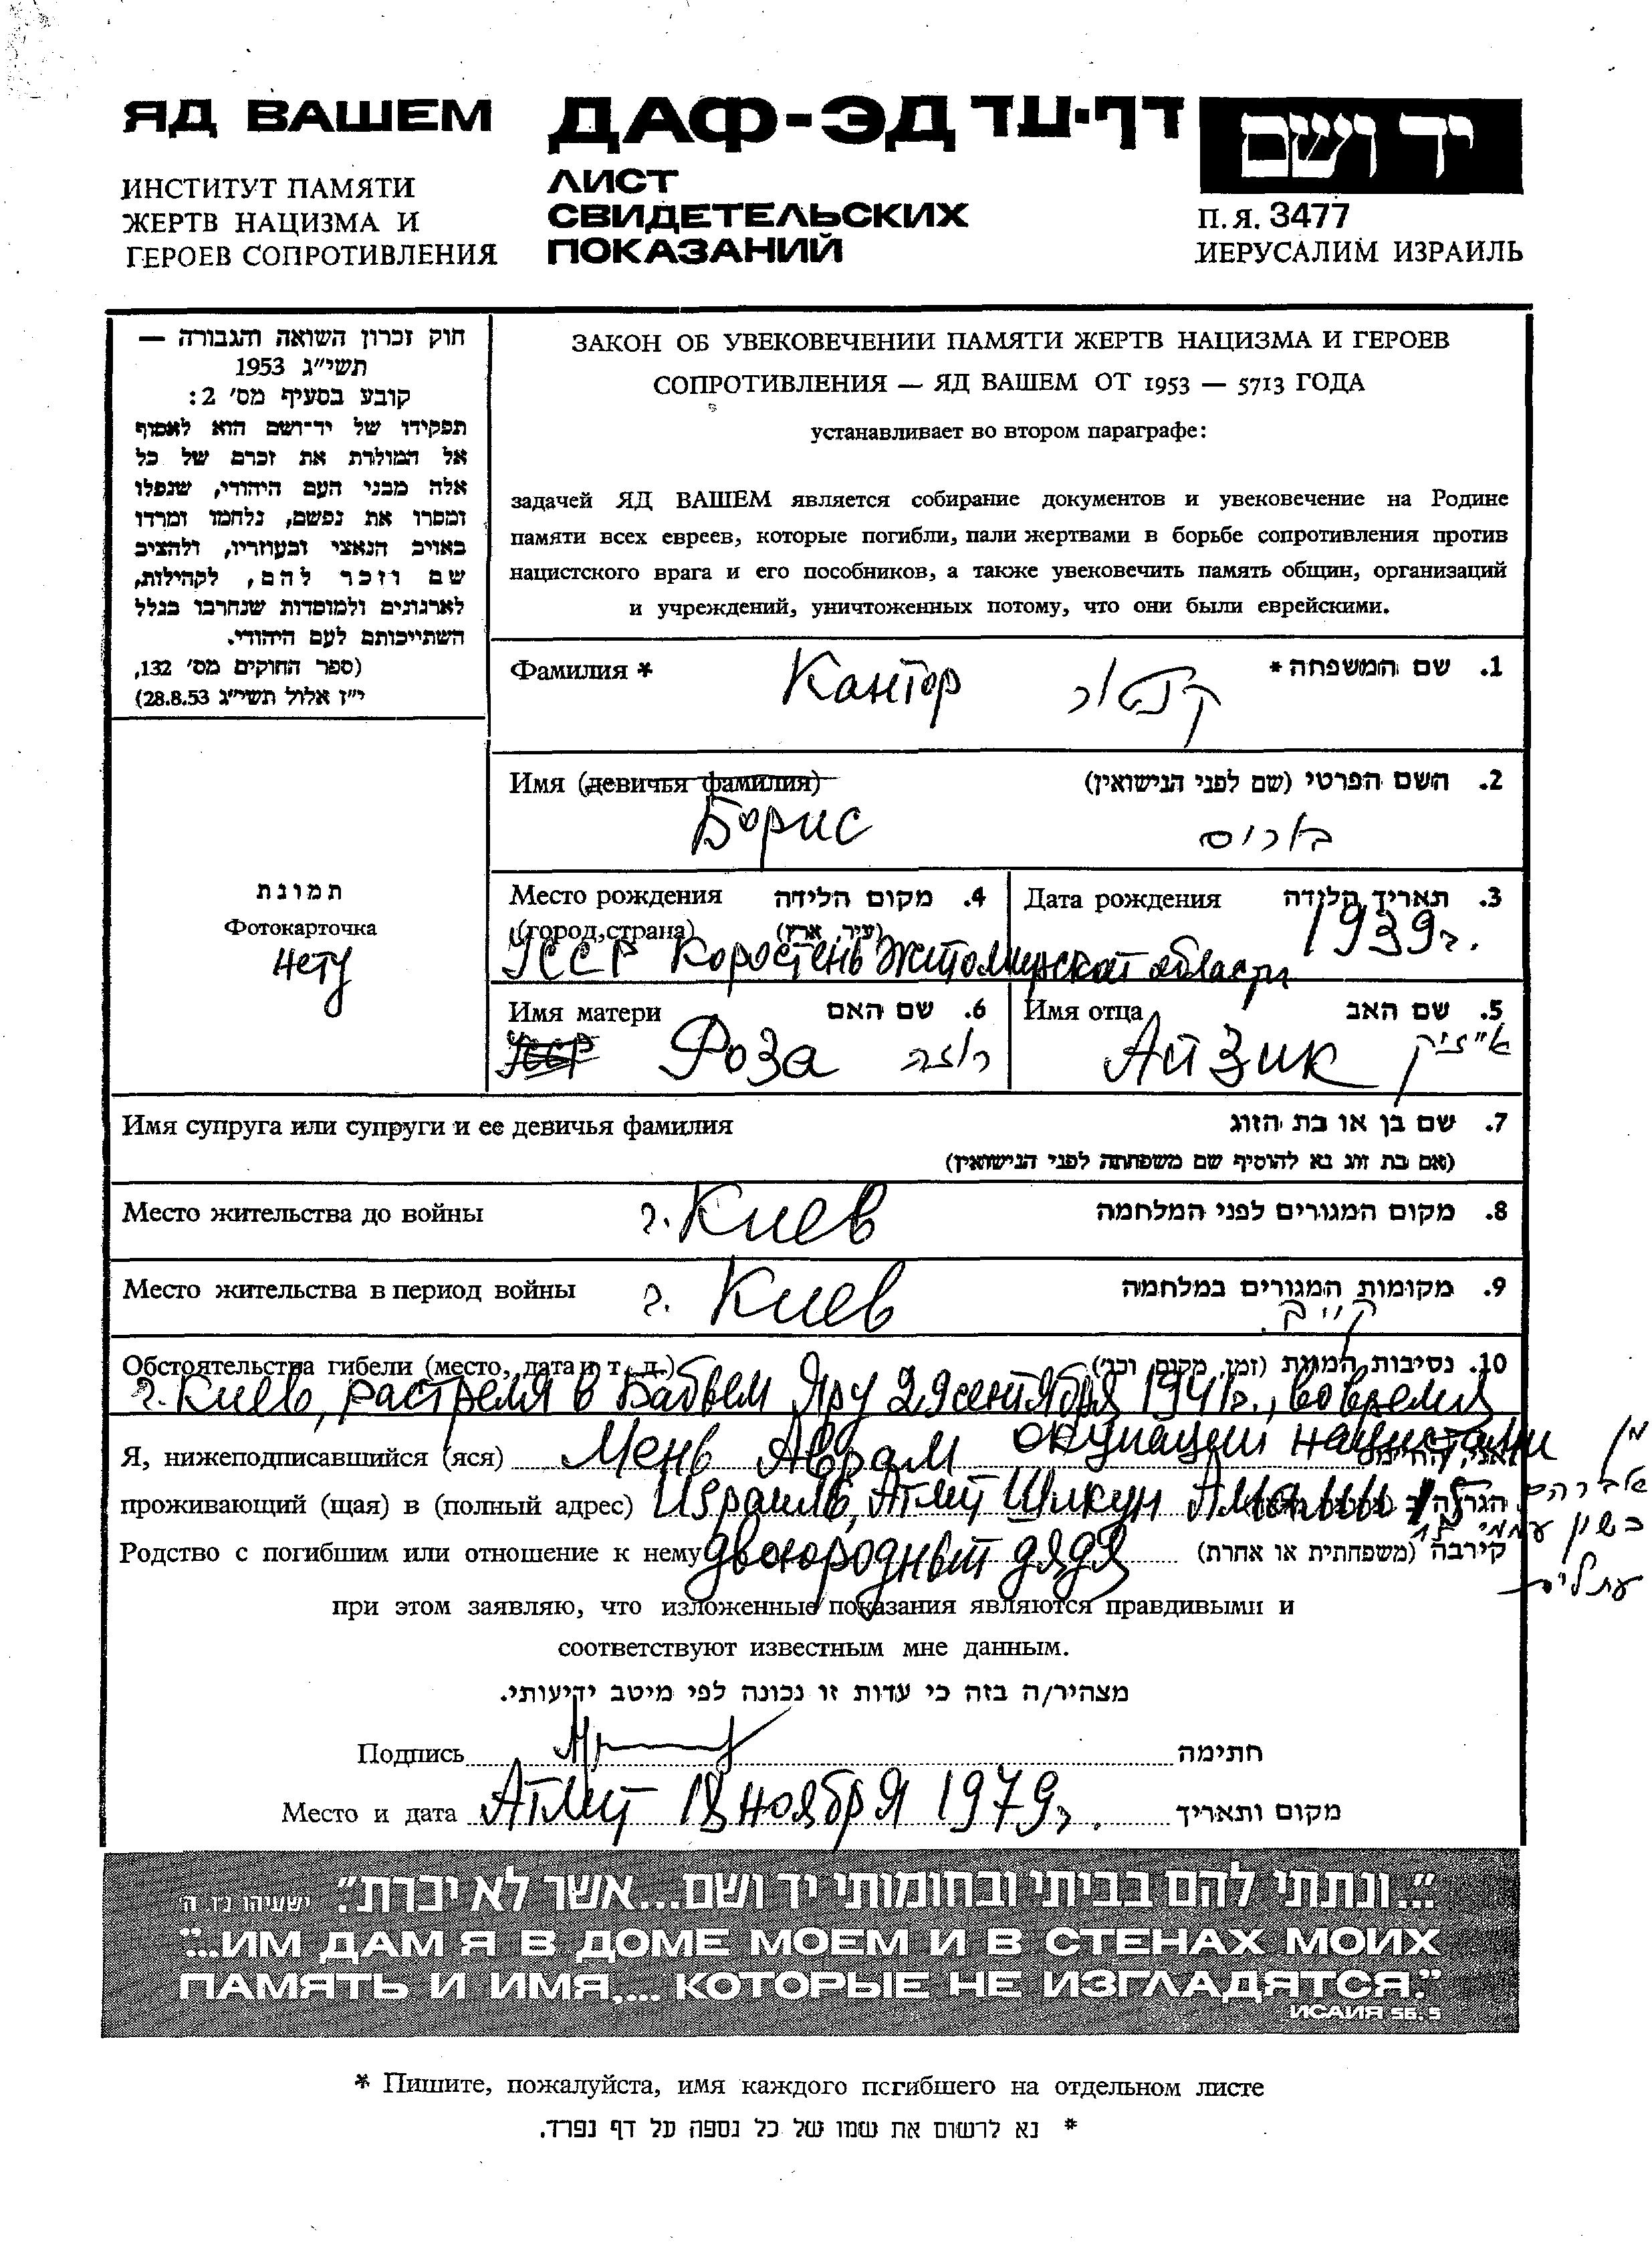 ЯД ВАШЕМ
ИНСТИТУТ ПАМЯТИ
ЖЕРТВ НАЦИЗМА И
ГЕРОЕВ СОПРОТИВЛЕНИЯ
ДАФ-ЭД דף-עד
ЛИСТ
СВИДЕТЕЛЬСКИХ
ПОКАЗАНИЙ
יד ושם
П.Я. 3477
ИЕРУСАЛИМ ИЗРАИЛЬ
חוק זכרון השואה והגבורה —
תשי״ג 1953
קובע בסעיף מס׳ 2:
תפקידו של יד־ושם הוא לאסוף
אל המולדת את זכרם של כל
אלה מבני העם היהודי, שנפלו
ומסרו את נפשם, נלחמו ומרדו
באויב הנאצי ובעוזריו, ולהציב
שם וזכר להם, לקהילות,
לארגונים ולמוסדות שנחרבו בגלל
השתייכותם לעם היהודי.
(ספר החוקים מס׳ 132,
י״ז אלול תשי״ג 28.8.53)
ЗАКОН ОБ УВЕКОВЕЧЕНИИ ПАМЯТИ ЖЕРТВ НАЦИЗМА И ГЕРОЕВ
СОПРОТИВЛЕНИЯ — ЯД ВАШЕМ ОТ 1953 — 5713 ГОДА
устанавливает во втором параграфе:
задачей ЯД ВАШЕМ является собирание документов и увековечение на Родине
памяти всех евреев, которые погибли, пали жертвами в борьбе сопротивления против
нацистского врага и его пособников, а также увековечить память общин, организаций
и учреждений, уничтоженных потому, что они были еврейскими.
Фамилия * Кантор קנטור 1. שם המשפחה *
Имя (девичья фамилия) 2. השם הפרטי (שם לפני הנישואין)
Борис בוריס
תמונת
Фотокарточка
нету
Место рождения 4. מקום הלידה
(город,страна) (עיר, ארץ)
УССР Коростень Житомирской области
Дата рождения 3. תאריך הלידה
1939г.
Имя матери 6. שם האם
УССР Роза רוזה
Имя отца 5. שם האב
Айзик אייזיק
Имя супруга или супруги и ее девичья фамилия 7. שם בן או בת הזוג
(אם בת זוג נא להוסיף שם משפחתה לפני הנישואין)
Место жительства до войны г. Киев 8. מקום המגורים לפני המלחמה
Место жительства в период войны г. Киев 9. מקומות המגורים במלחמה
קייב.
Обстоятельства гибели (место, дата и т. д.) 10. נסיבות המוות (זמן, מקום וכו׳)
г. Киев, растрелян в Бабьем Яру 29 сентября 1941г., во время
окупации нацистами
Я, нижеподписавшийся (яся) Мень Аврам אני, החתום מן
проживающий (щая) в (полный адрес) Израиль, Атлит Шикун Амами 15 אברהם
Родство с погибшим или отношение к нему двоюродный дядя קירבה (משפחתית או אחרת) בשכון עממי 15
עתלית
при этом заявляю, что изложенные показания являются правдивыми и
соответствуют известным мне данным.
מצהיר/ה בזה כי עדות זו נכונה לפי מיטב ידיעותי.
Подпись חתימה
Место и дата Атлит 18 ноября 1979г. מקום ותאריך
״...ונתתי להם בביתי ובחומותי יד ושם...אשר לא יכרת״. ישעיהו נ״ו ה׳
"...ИМ ДАМ Я В ДОМЕ МОЕМ И В СТЕНАХ МОИХ
ПАМЯТЬ И ИМЯ,... КОТОРЫЕ НЕ ИЗГЛАДЯТСЯ."
ИСАИЯ 56.5
* Пишите, пожалуйста, имя каждого погибшего на отдельном листе
* נא לרשום את שמו של כל נספה על דף נפרד.